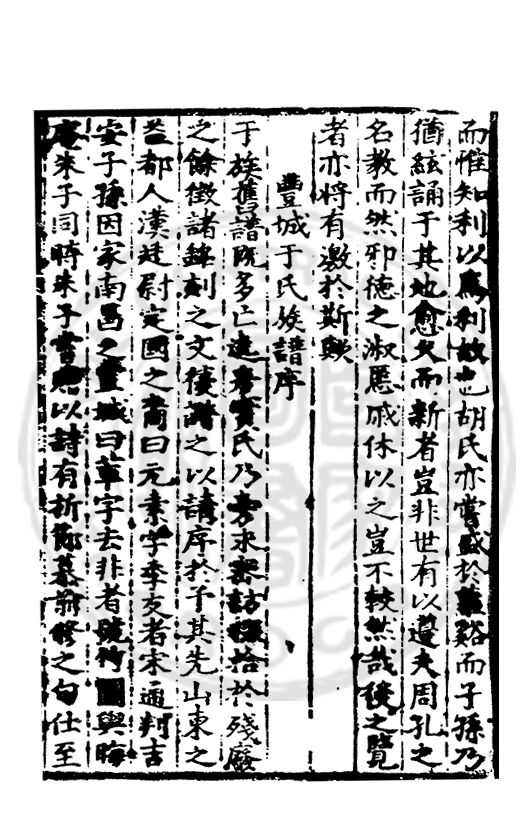 而惟知利以爲利故也胡氏亦嘗盛於蘿谿而子孫乃
猶絃誦于其地愈久而新者豈非世有以遵夫周孔之
名教而然邪德之淑慝戚休以之豈不較然哉後之覽
者亦將有激於斯歟
豐城于氏族譜序
于族舊譜既多亡逸秀實氏乃旁求密訪掇拾於殘廢
之餘徵諸銘刻之文僂譜之以請序於予其先山東之
益都人漢廷尉定國之裔曰元素字季友者宋通判吉
安子孫因家南昌之豐城曰革字去非者號竹圖與晦
庵朱子同時朱子嘗贈以詩有折節慕前修之句仕至